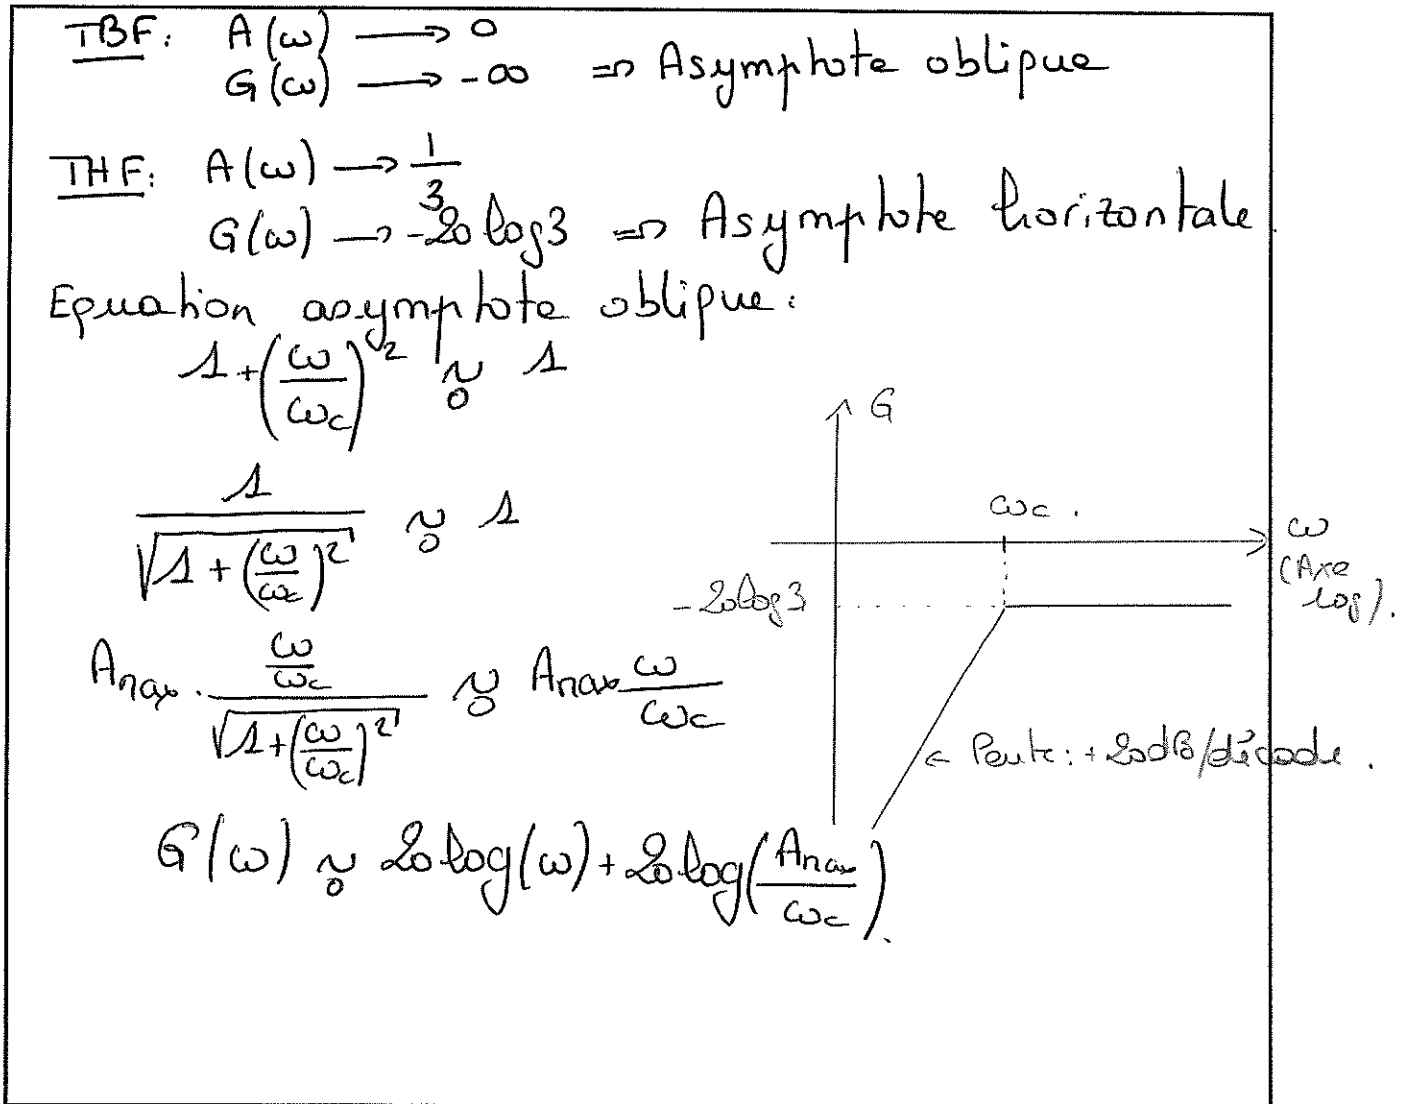 TBF: A(ω) → 0
G(ω) → -∞ => Asymptote oblique
THF: A(ω) → 1/3
G(ω) → -20 log 3 => Asymptote horizontale
Equation asymptote oblique:
1 + (ω/ωc)² ~₀ 1
1/√(1 + (ω/ωc)²) ~₀ 1
Amax · (ω/ωc)/√(1 + (ω/ωc)²) ~₀ Amax ω/ωc
G(ω) ~₀ 20 log(ω) + 20 log(Amax/ωc).
G
ωc.
ω
(Axe
log).
-20log3
← Pente: +20dB/décade.